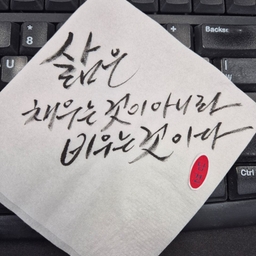 삶은
채우는 것이 아니라
비우는 것이다
8
U
Backspace
Ctrl